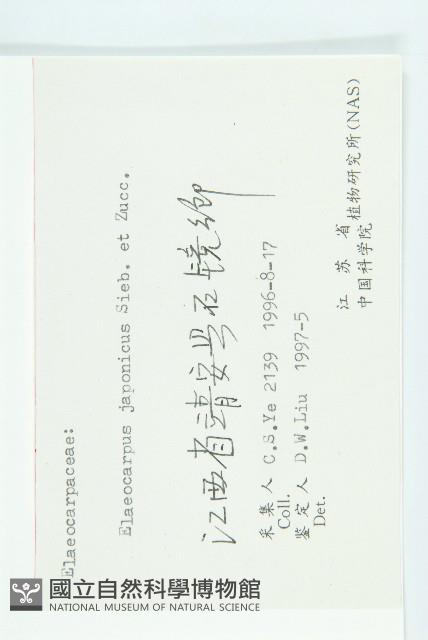 Elaeocarpaceae:
Elaeocarpus japonicus Sieb. et Zucc.
江西省靖安县石镜乡
采集人 C.S.Ye 2139 1996-8-17
Coll.
鉴定人 D.W.Liu 1997-5
Det.
江苏省植物研究所(NAS)
中国科学院
國立自然科學博物館
NATIONAL MUSEUM OF NATURAL SCIENCE